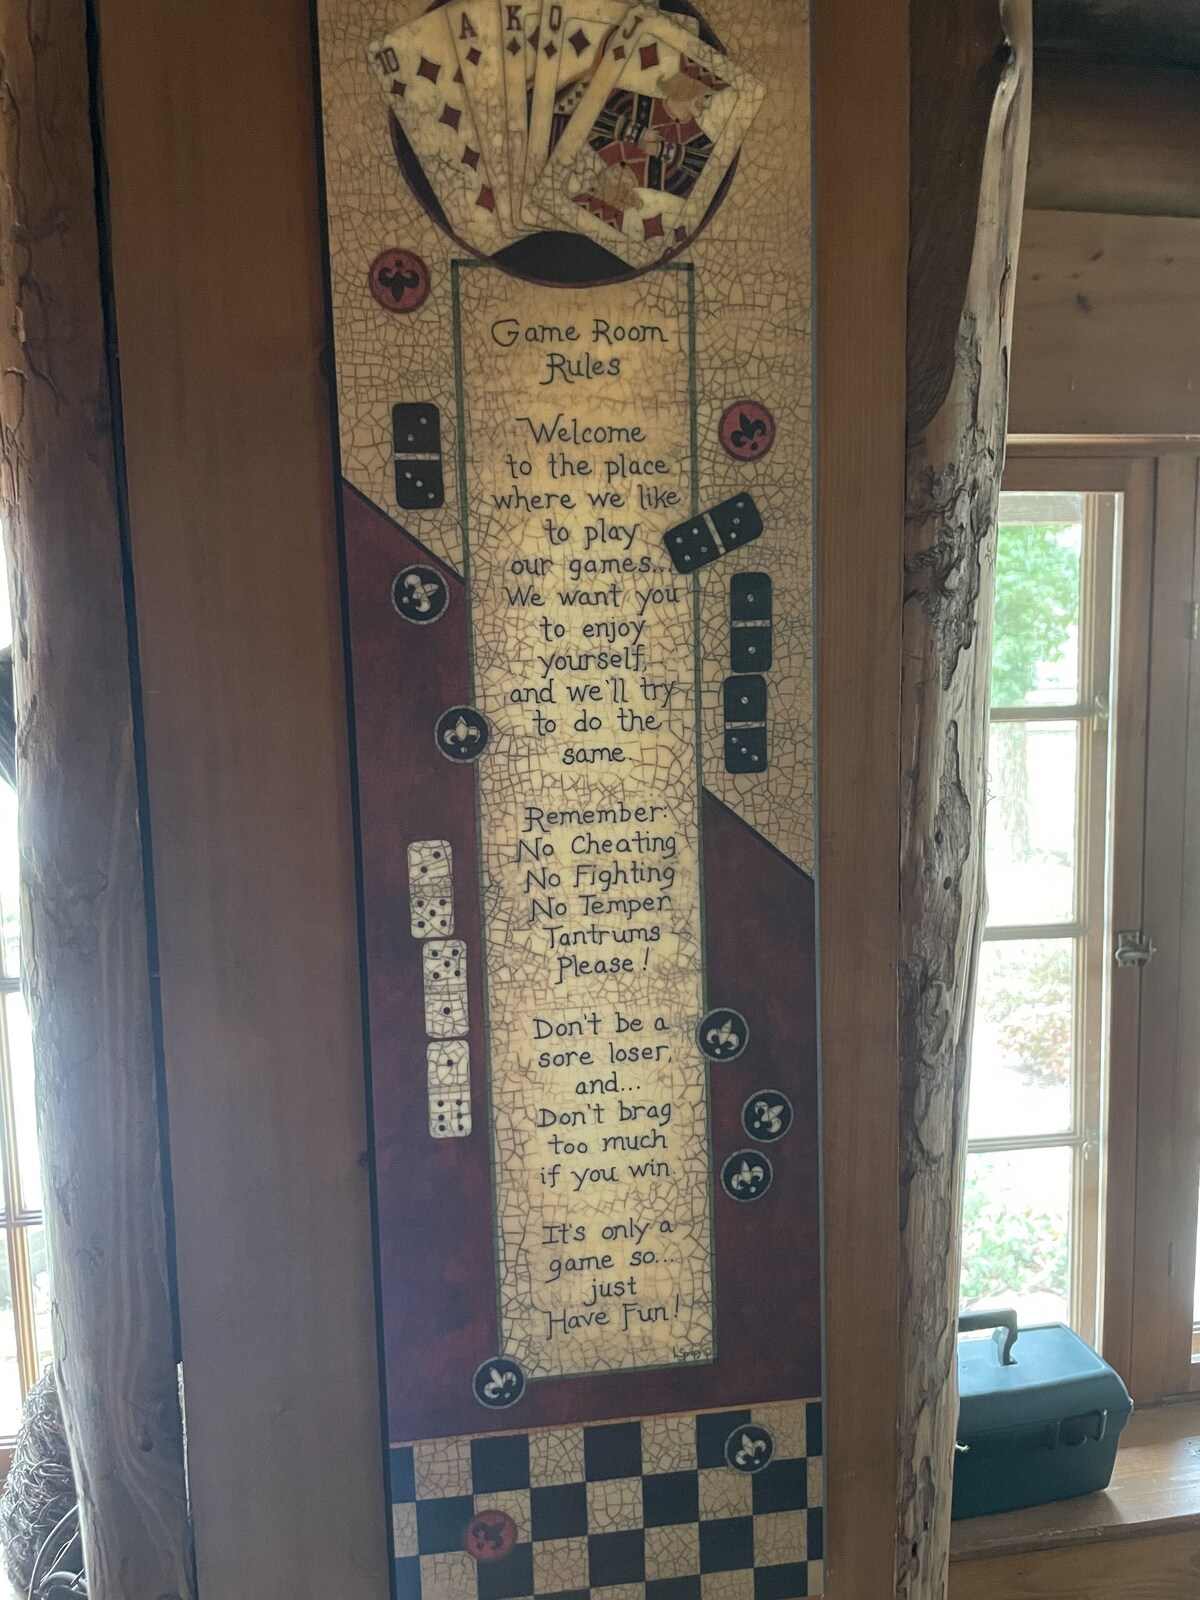 10 A K Q J
Game Room
Rules
Welcome
to the place
where we like
to play
our games...
We want you
to enjoy
yourself,
and we'll try
to do the
same.
Remember:
No Cheating
No Fighting
No Temper
Tantrums
Please!
Don't be a
sore loser,
and...
Don't brag
too much
if you win.
It's only a
game so...
just
Have Fun!